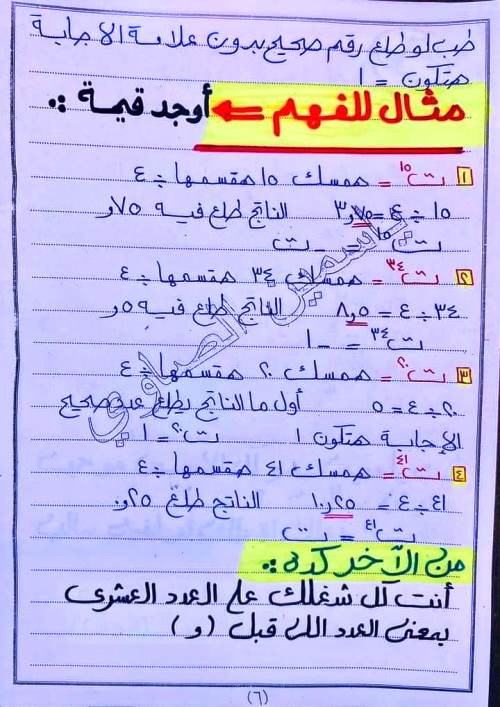 طب لو طلع رقم صحيح بدون علامة الاجابة
هتكون = ١
مثال للفهم ⇐ أوجد قيمة :.
١ ت^١٥ = همسك ١٥ هقسمها ÷ ٤
١٥ ÷ ٤ = ٣و٧٥ الناتج طلع فيه ٧٥و
ت^١٥ = -ت
٢ ت^٣٤ = همسك ٣٤ هقسمها ÷ ٤
٣٤ ÷ ٤ = ٨و٥ الناتج طلع فيه ٥و
ت^٣٤ = -١
٣ ت^٢٠ = همسك ٢٠ هقسمها ÷ ٤
٢٠ ÷ ٤ = ٥ أول ما الناتج يطلع عدد صحيح
الإجابة هتكون ١ ت^٢٠ = ١
٤ ت^٤١ = همسك ٤١ هقسمها ÷ ٤
٤١ ÷ ٤ = ١٠و٢٥ الناتج طلع ٢٥و٠
ت^٤١ = ت
من الآخر كدة :.
أنت كل شغلك على العدد العشرى
بمعنى العدد اللى قبل (و)
(٦)